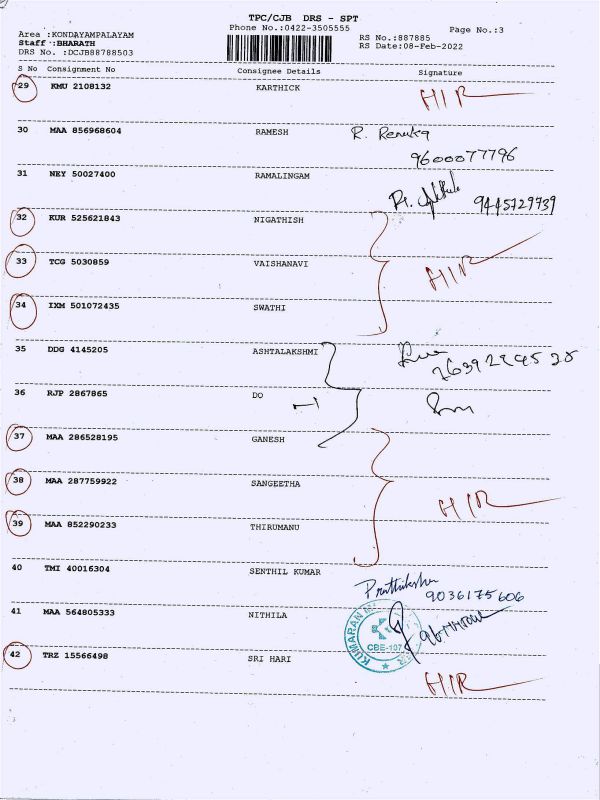 TPC/CJB DRS - SPT
Phone No.:0422-3505555
Page No.:3
Area :KONDAYAMPALAYAM
Staff :BHARATH
DRS No. :DCJB88788503
RS No.:887885
RS Date:08-Feb-2022
S No Consignment No Consignee Details Signature
29 KMU 2108132 KARTHICK HIR
30 MAA 856968604 RAMESH R. Renuka
9600077796
31 NEY 50027400 RAMALINGAM
9445729739
32 KUR 525621843 NIGATHISH
33 TCG 5030859 VAISHANAVI HIR
34 IXM 501072435 SWATHI
35 DDG 4145205 ASHTALAKSHMI
36 RJP 2867865 DO
37 MAA 286528195 GANESH
38 MAA 287759922 SANGEETHA HIR
39 MAA 852290233 THIRUMANU
40 TMI 40016304 SENTHIL KUMAR Prathiksha
9036175606
41 MAA 564805333 NITHILA
KUMARAN
CBE-107
42 TRZ 15566498 SRI HARI HIR